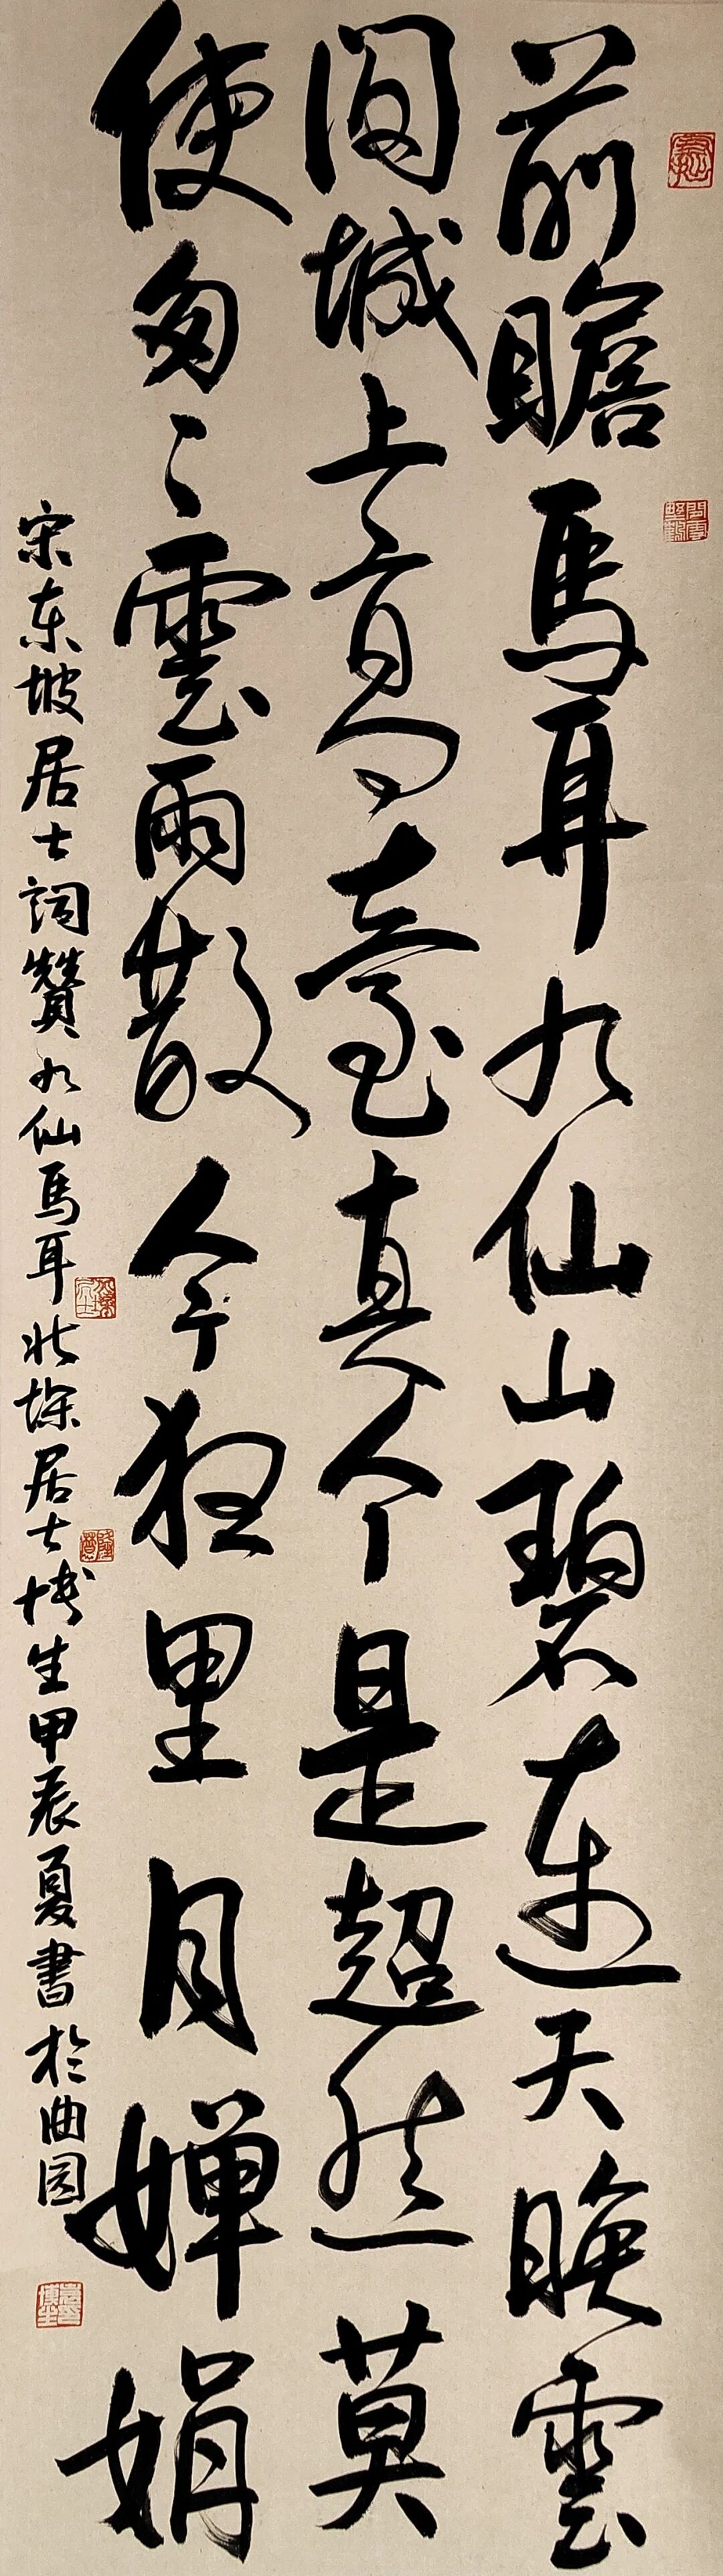 前瞻馬耳九仙山碧連天晚雲
間城上高臺真个是超然莫
使匆〻雲雨散今夜里月嬋娟
宋東坡居士詞贊九仙馬耳北垛居士博生甲辰夏書於曲园